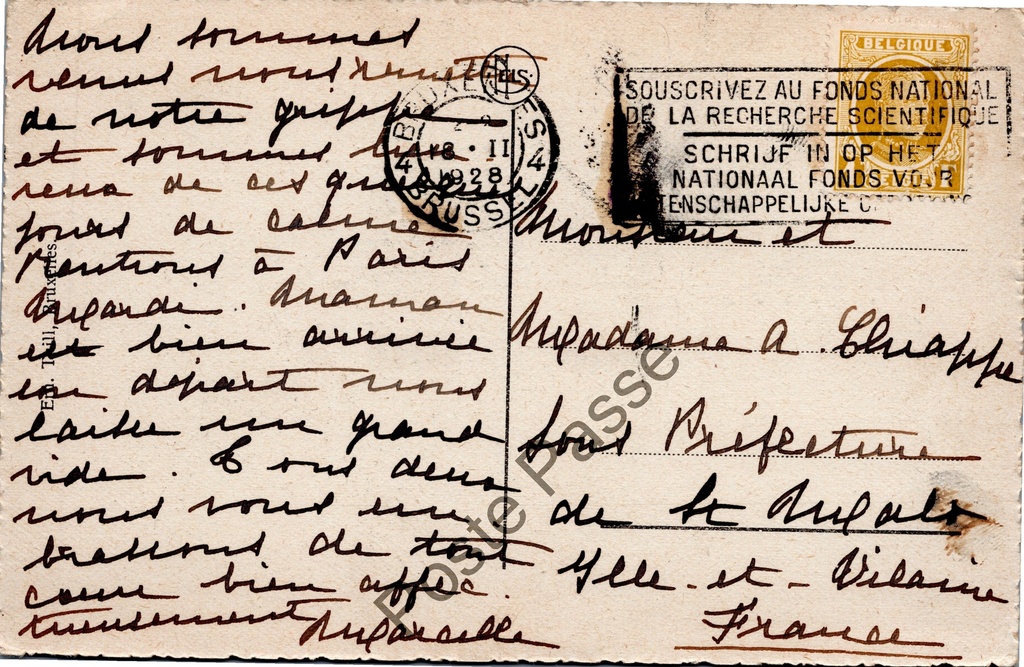 Nous sommes
venus nous remettre
de notre grippe
et sommes
de ces quelques
jours de calme
Rentrons à Paris
Mardi. Maman
est bien arrivée
son départ nous
laisse un grand
vide. Tous deux
nous vous em
brassons de tout
cœur bien affec.
tueusement
Marcelle
Edit. Thill, Bruxelles.
ELS.
BRUXELLES 4
18 • II
1928
4 BRUSSEL
SOUSCRIVEZ AU FONDS NATIONAL
DE LA RECHERCHE SCIENTIFIQUE
SCHRIJF IN OP HET
NATIONAAL FONDS VOOR
WETENSCHAPPELIJKE
BELGIQUE
Monsieur et
Madame A. Chiappe
Sous Préfecture
de St Malo
Ille-et-Vilaine
France
Poste Passe